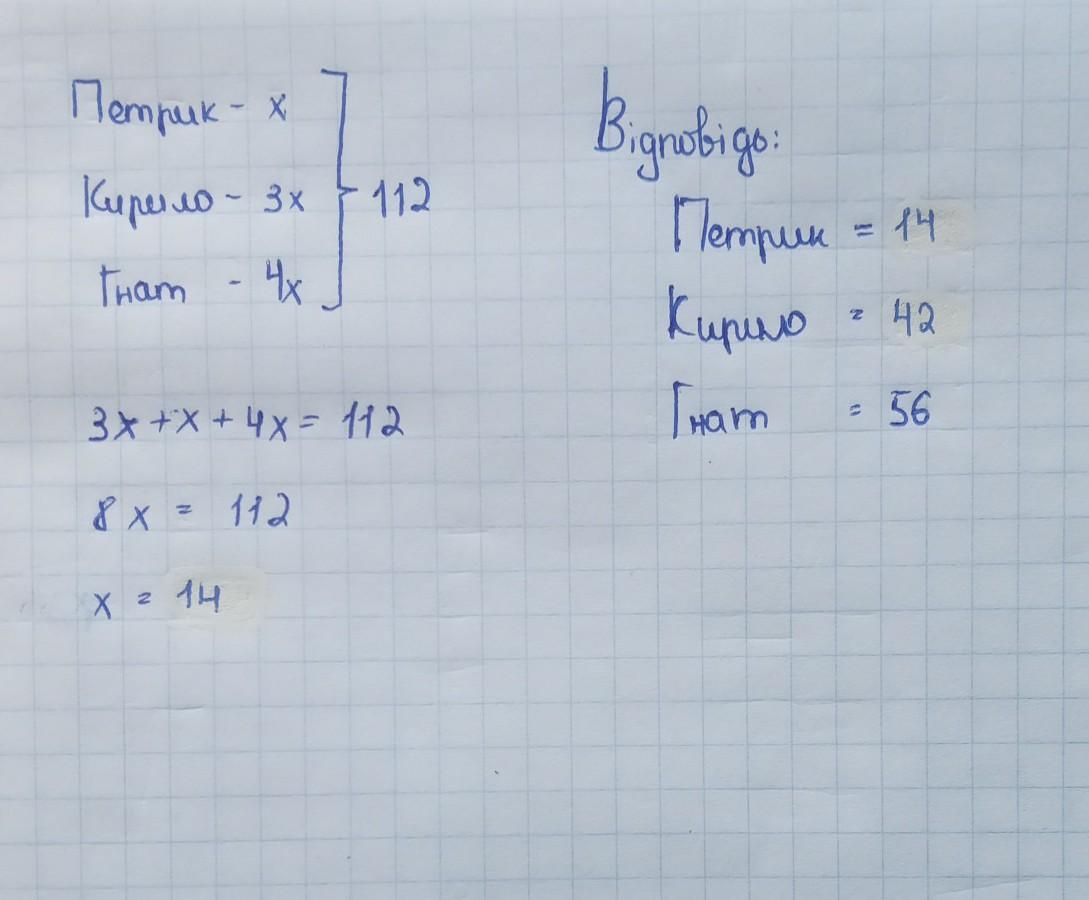 Петрик - x
Кирило - 3x
Гнат - 4x
112
3x + x + 4x = 112
8x = 112
x = 14
Відповідь:
Петрик = 14
Кирило = 42
Гнат = 56